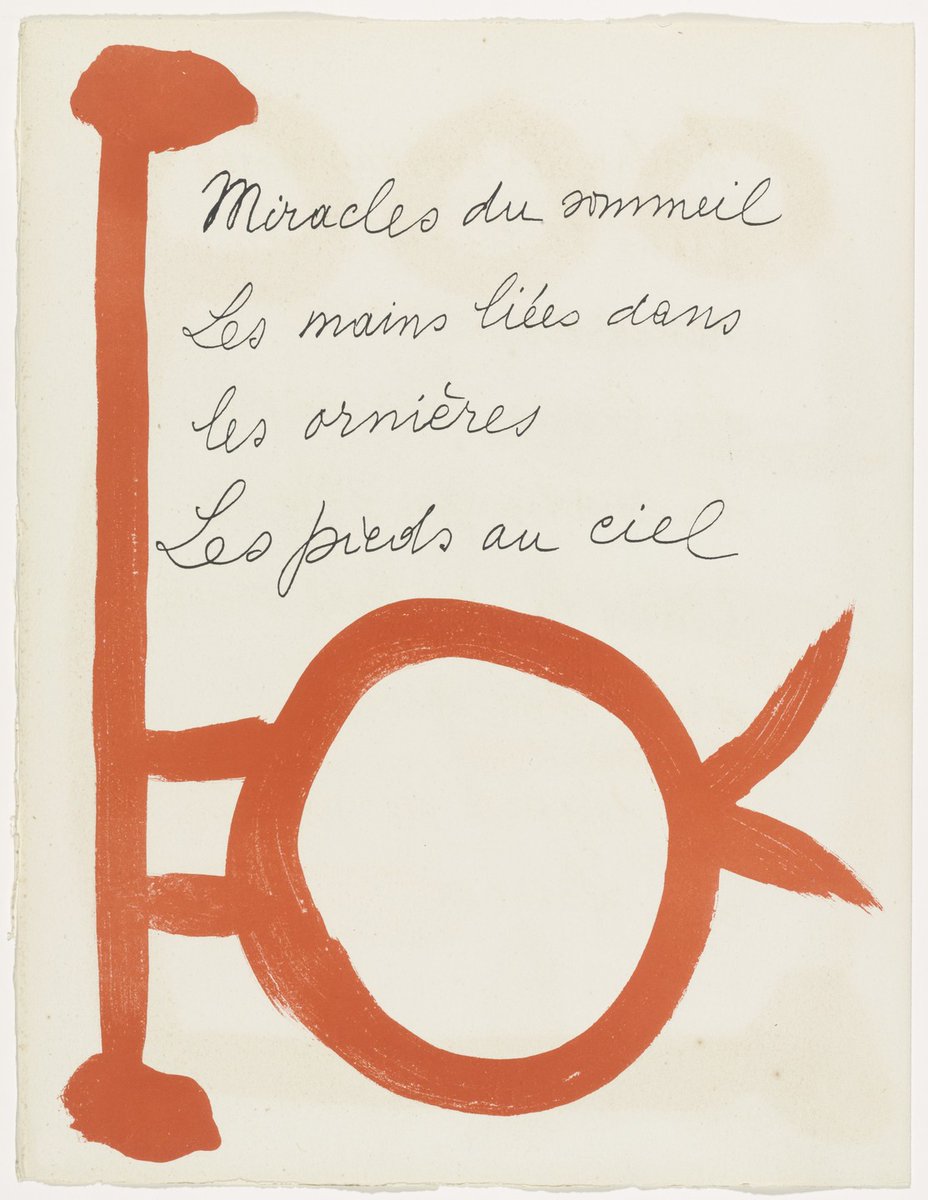 Miracles du sommeil
Les mains liées dans
les ornières
Les pieds au ciel